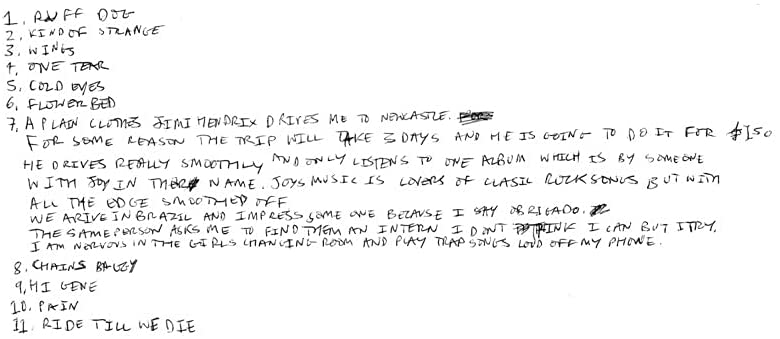 1. RUFF DOG
2. KIND OF STRANGE
3. WINGS
4. ONE TEAR
5. COLD EYES
6. FLOWER BED
7. A PLAIN CLOTHES JIMI HENDRIX DRIVES ME TO NEWCASTLE.
FOR SOME REASON THE TRIP WILL TAKE 3 DAYS AND HE IS GOING TO DO IT FOR $150
HE DRIVES REALLY SMOOTHLY AND ONLY LISTENS TO ONE ALBUM WHICH IS BY SOMEONE
WITH JOY IN THEIR NAME. JOYS MUSIC IS COVERS OF CLASIC ROCK SONGS BUT WITH
ALL THE EDGE SMOOTHED OFF
WE ARIVE IN BRAZIL AND IMPRESS SOME ONE BECAUSE I SAY OBRIGADO.
THE SAME PERSON ASKS ME TO FIND THEM AN INTERN I DONT THINK I CAN BUT I TRY.
I AM NERVOUS IN THE GIRLS CHANGING ROOM AND PLAY TRAP SONGS LOUD OFF MY PHONE.
8. CHAINS BAGGY
9, HI GENE
10. PAIN
11. RIDE TILL WE DIE